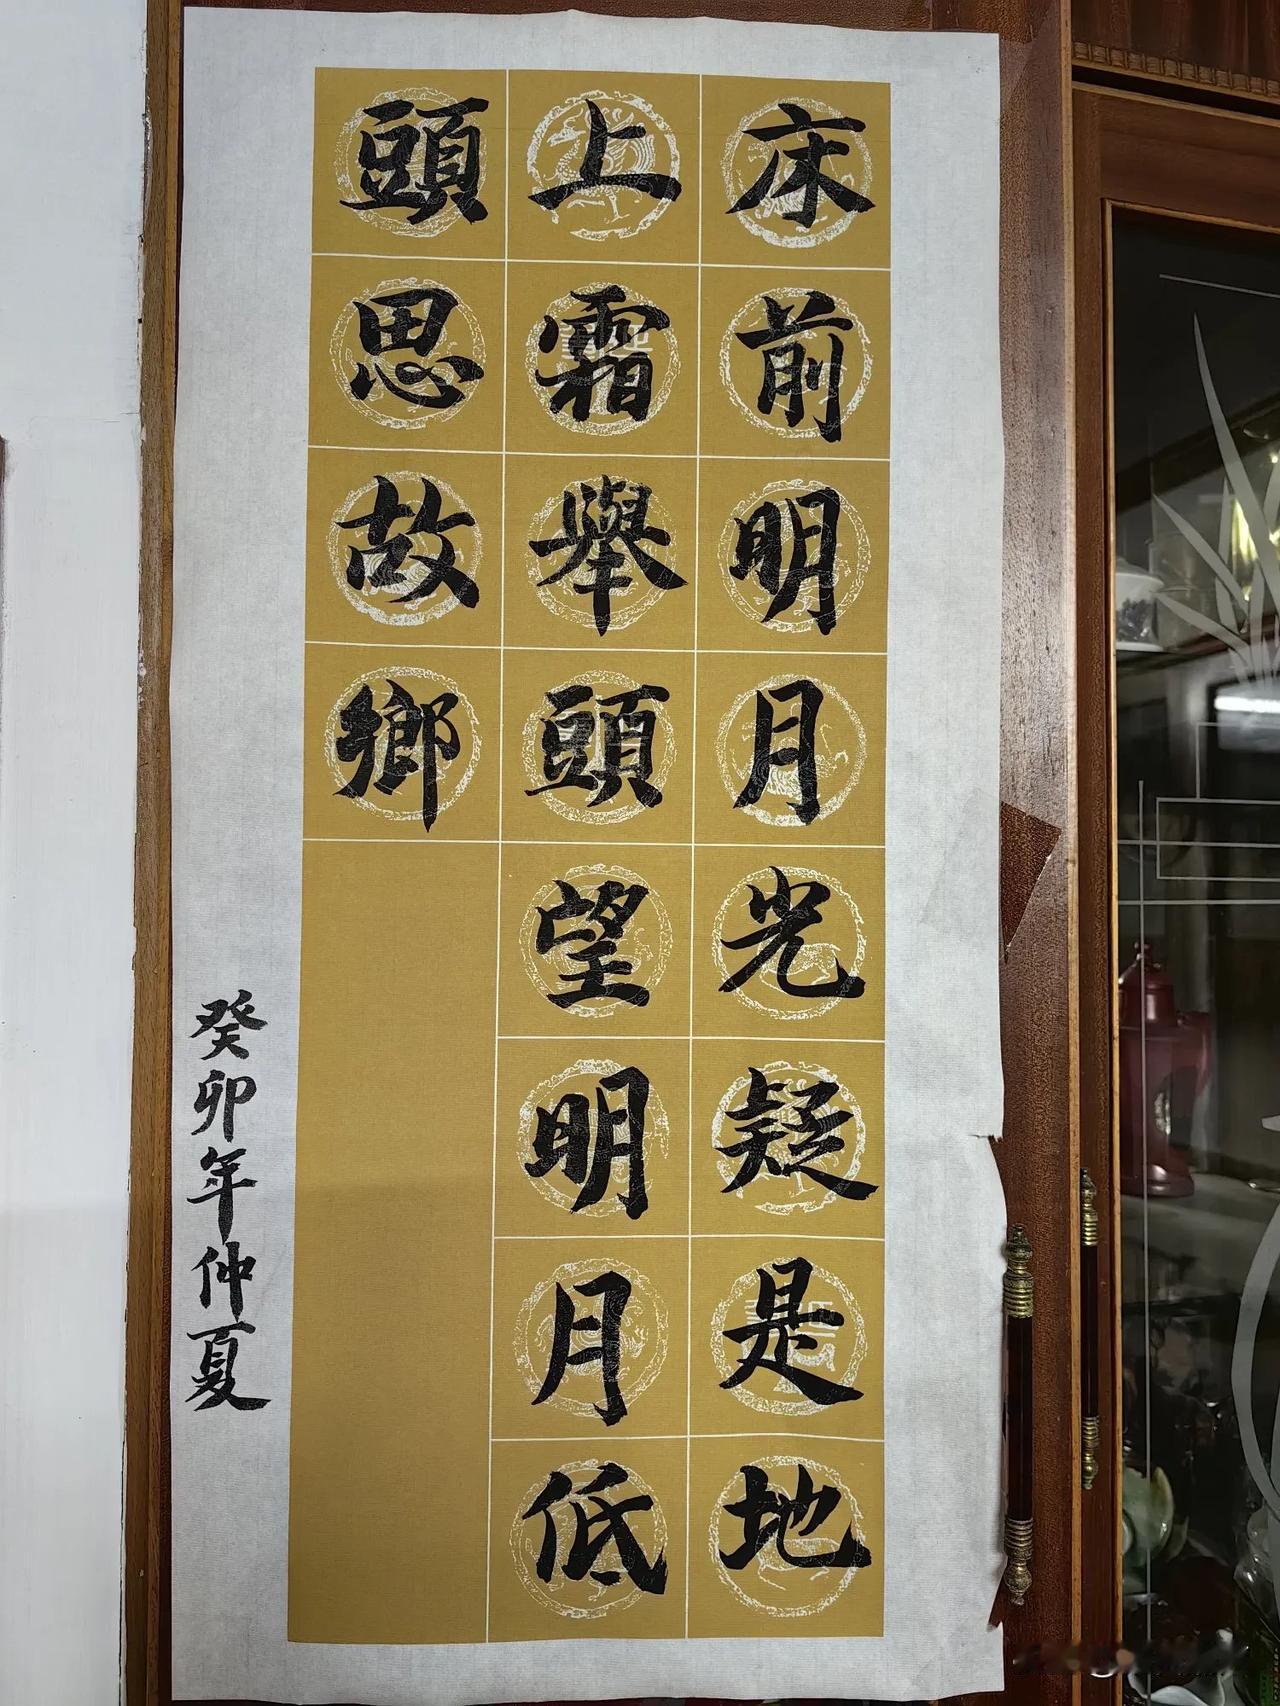 床前明月光疑是地
上霜舉頭望明月低
頭思故鄉
癸卯年仲夏